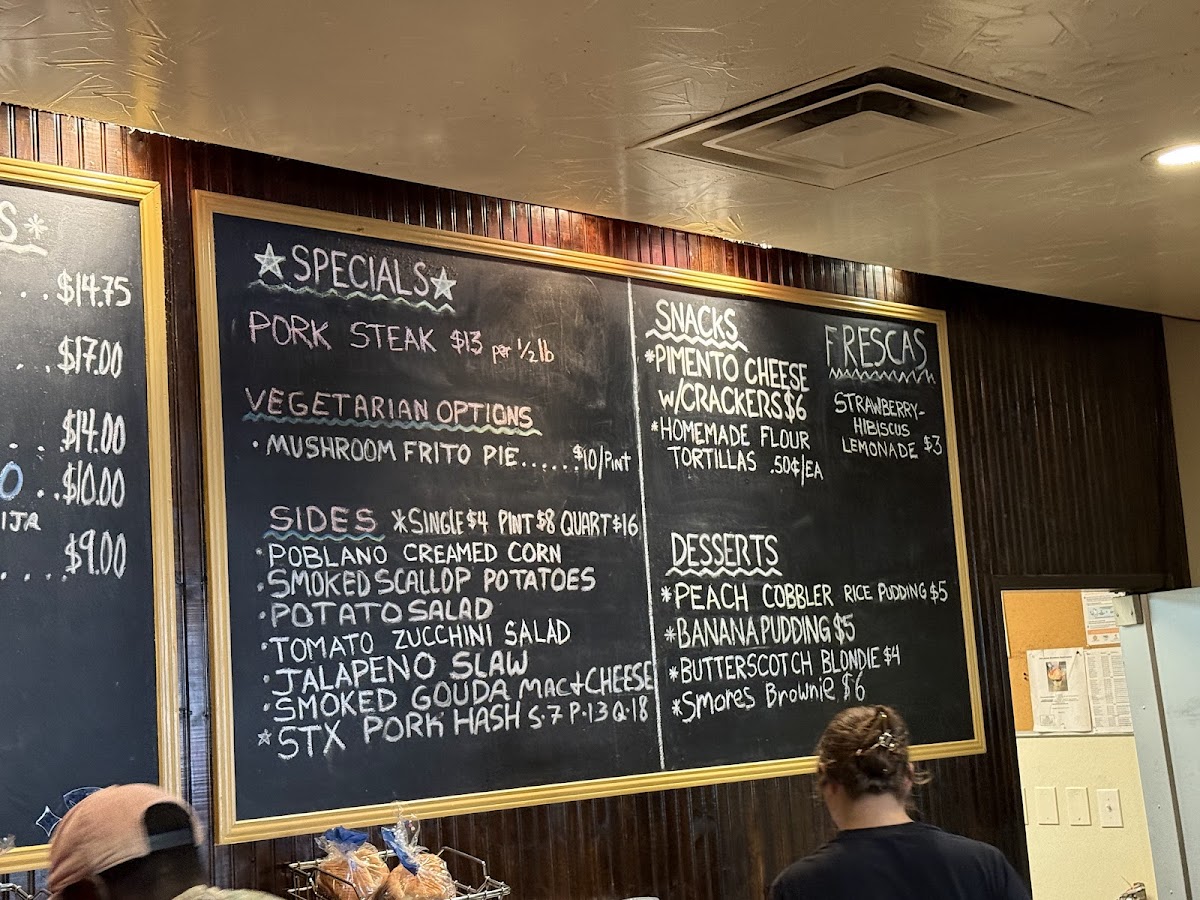 S*
. . . $14.75
. . . $17.00
. $14.00
O . . $10.00
IJA
. . . . . $9.00
☆SPECIALS☆
PORK STEAK $13 per 1/2 lb
VEGETARIAN OPTIONS
• MUSHROOM FRITO PIE...... $10/PINT
SIDES *SINGLE $4 PINT $8 QUART $16
• POBLANO CREAMED CORN
• SMOKED SCALLOP POTATOES
• POTATO SALAD
• TOMATO ZUCCHINI SALAD
• JALAPENO SLAW
• SMOKED GOUDA MAC+CHEESE
☆ STX PORK HASH S·7 P·13 Q·18
SNACKS
*PIMENTO CHEESE
W/CRACKERS $6
*HOMEMADE FLOUR
TORTILLAS .50¢/EA
FRESCAS
STRAWBERRY-
HIBISCUS
LEMONADE $3
DESSERTS
*PEACH COBBLER RICE PUDDING $5
*BANANA PUDDING $5
*BUTTERSCOTCH BLONDIE $4
*Smores Brownie $6